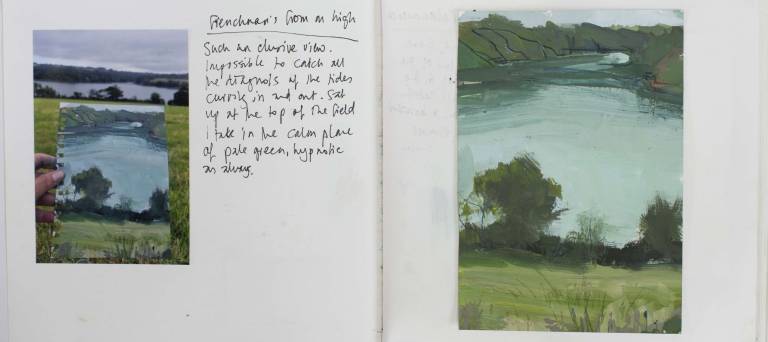 Frenchman's from on high
Such an elusive view.
Impossible to catch all
the diagonals of the tides
curving in and out. Sat
up at the top of the field
I take in the calm plane
of pale green, hypnotic
as always.